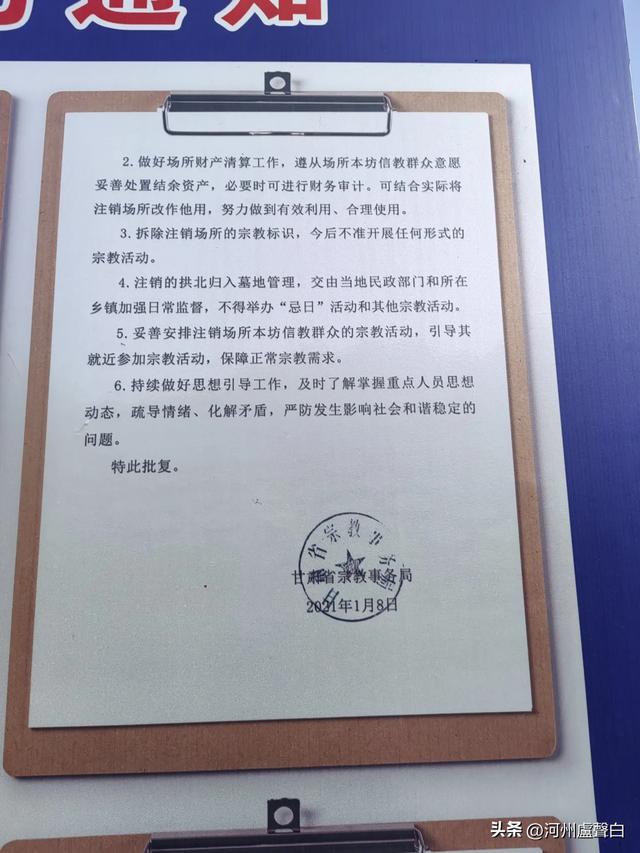 通知
2.做好场所财产清算工作，遵从场所本坊信教群众意愿
妥善处置结余资产，必要时可进行财务审计。可结合实际将
注销场所改作他用，努力做到有效利用、合理使用。
3.拆除注销场所的宗教标识，今后不准开展任何形式的
宗教活动。
4.注销的拱北归入墓地管理，交由当地民政部门和所在
乡镇加强日常监督，不得举办“忌日”活动和其他宗教活动。
5.妥善安排注销场所本坊信教群众的宗教活动，引导其
就近参加宗教活动，保障正常宗教需求。
6.持续做好思想引导工作，及时了解掌握重点人员思想
动态，疏导情绪、化解矛盾，严防发生影响社会和谐稳定的
问题。
特此批复。
甘肃省宗教事务局
甘肃省宗教事务局
2021年1月8日
头条 @河州盧聲白